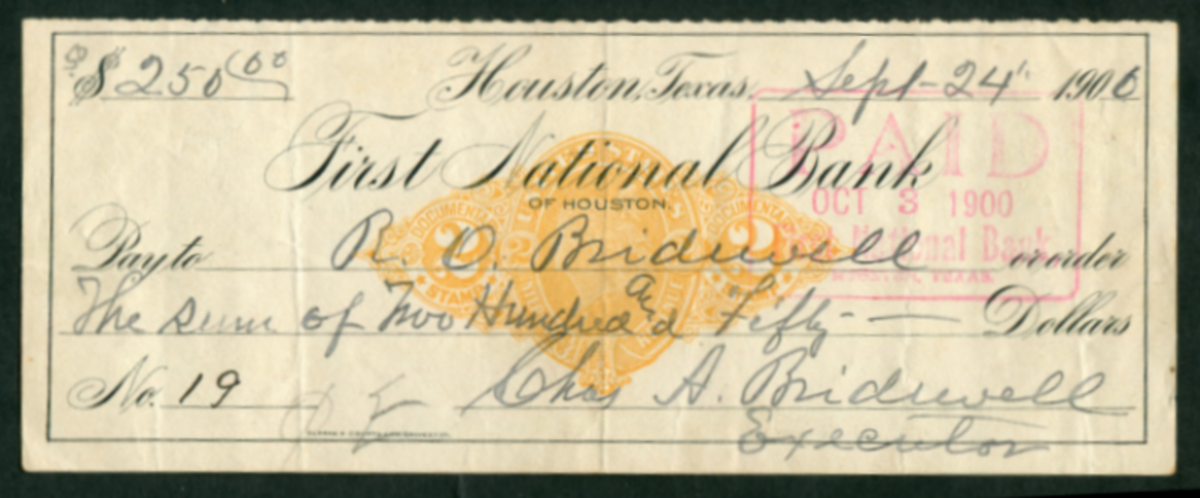 $ 250 00 Houston, Texas, Sept-24" 1900
First National Bank
OF HOUSTON.
PAID
OCT 3 1900
First National Bank
HOUSTON, TEXAS.
DOCUMENTARY 2 DOCUMENTARY 2
Pay to R. O. Bridewell or order
The sum of Two Hundred and Fifty — Dollars
No. 19 Chas A. Bridewell
Executor